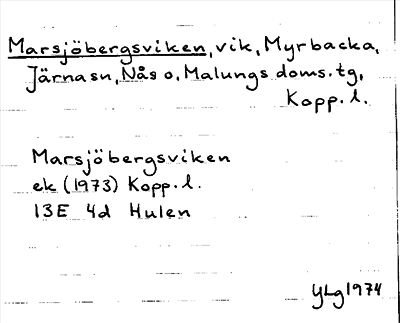 Marsjöbergsviken, vik, Myrbacka,
Järnasn, Nås o. Malungs doms.tg,
Kopp. l.
Marsjöbergsviken
ek (1973) Kopp. l.
13E 4d Hulen
YLg 1974